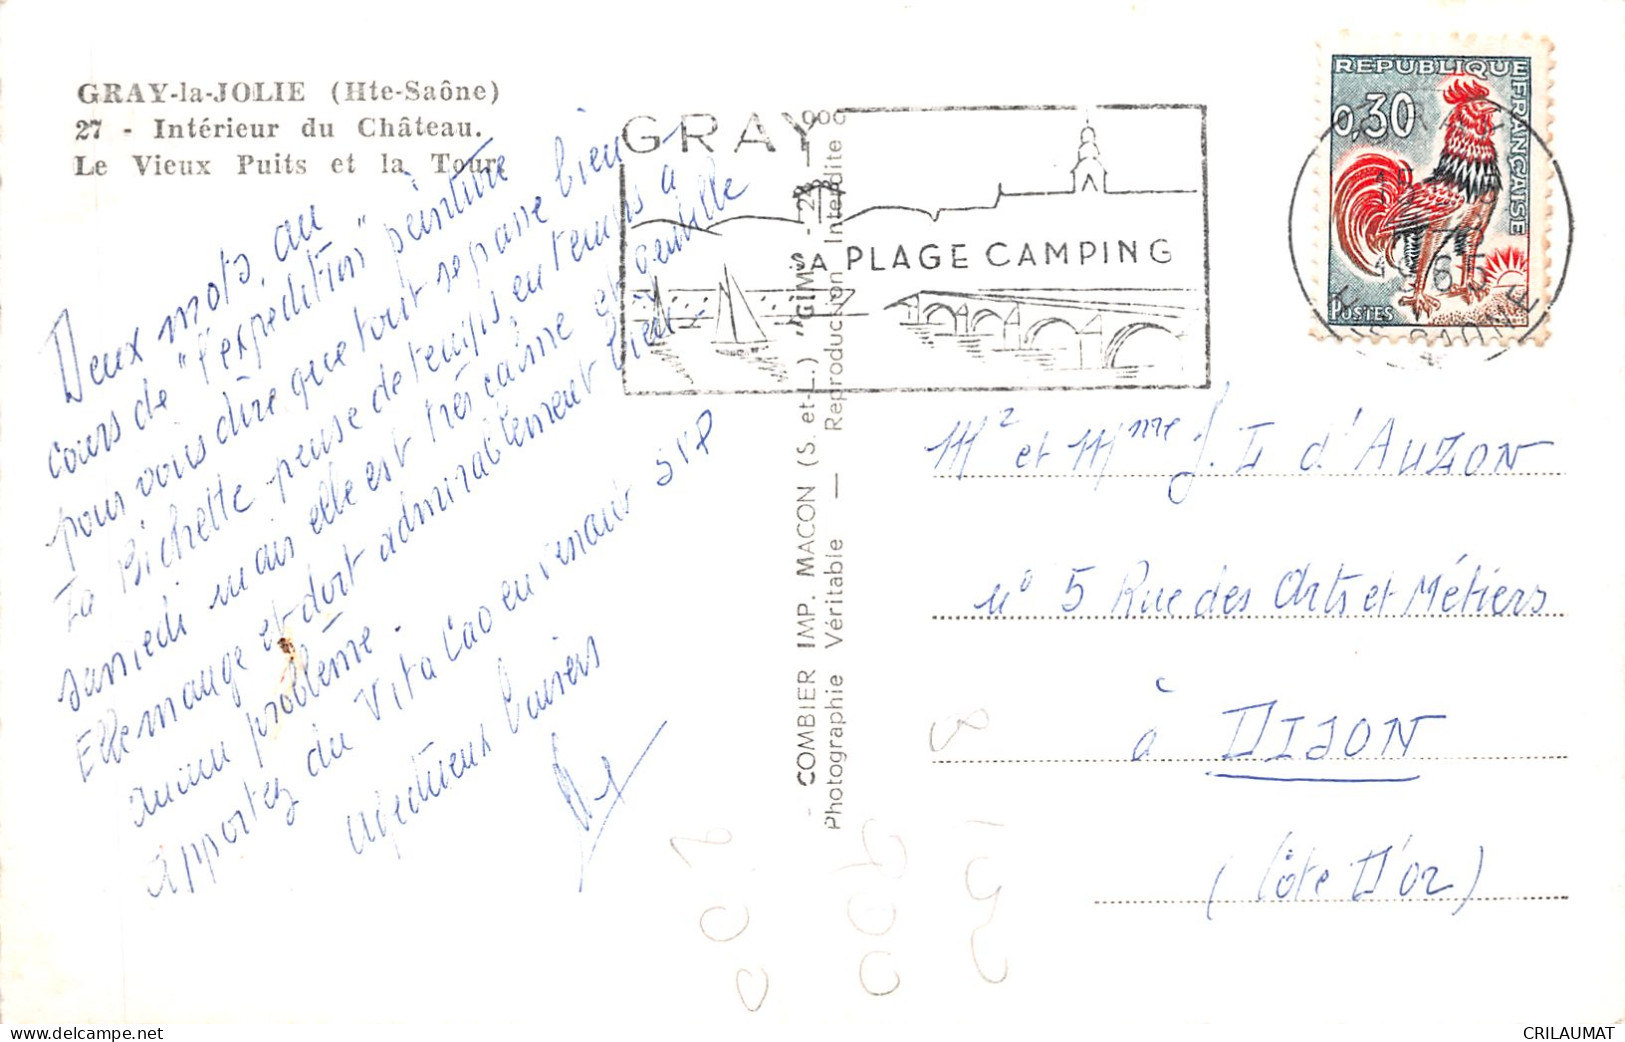 GRAY-la-JOLIE (Hte-Saône)
27 - Intérieur du Château.
Le Vieux Puits et la Tour
Deux mots, au
cours de "l'expédition" peinture
pour vous dire que tout se passe bien
La Bichette pleure de temps en temps à
samedi mais elle est très calme et gentille
Elle mange et dort admirablement bien -
aucun problème.
Apportez du Vita Cao en venant SVP
affectueux baisers
COMBIER IMP. MACON (S.-et-L.) "CIM"
Photographie Véritable — Reproduction Interdite
GRAY
SA PLAGE CAMPING
REPUBLIQUE FRANÇAISE
0,30
POSTES
Mr et Mme J. L d'AUZON
n° 5 Rue des Arts et Métiers
à DIJON
(Côte D'Or)
CRILAUMAT